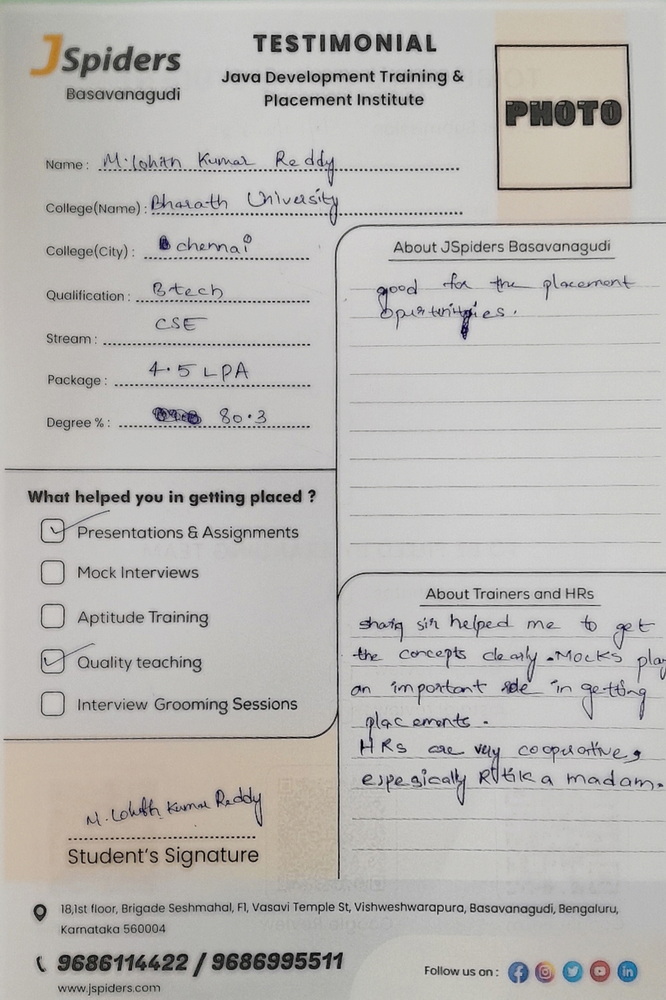 JSpiders
Basavanagudi
TESTIMONIAL
Java Development Training &
Placement Institute
PHOTO
Name : M. Lohith Kumar Reddy
College(Name) : Bharath University
College(City) : chennai
Qualification : Btech
Stream : CSE
Package : 4.5 LPA
Degree % : 80.3
What helped you in getting placed ?
Presentations & Assignments
Mock Interviews
Aptitude Training
Quality teaching
Interview Grooming Sessions
M. Lohith Kumar Reddy
Student's Signature
About JSpiders Basavanagudi
good for the placement
About Trainers and HRs
sir helped me to get
the concepts clearly. Mocks play
an important role in getting
placements.
HRs are very cooperative,
espegically Ritika madam.
18,1st floor, Brigade Seshmahal, F1, Vasavi Temple St, Vishweshwarapura, Basavanagudi, Bengaluru,
Karnataka 560004
9686114422 / 9686995511
www.jspiders.com
Follow us on :